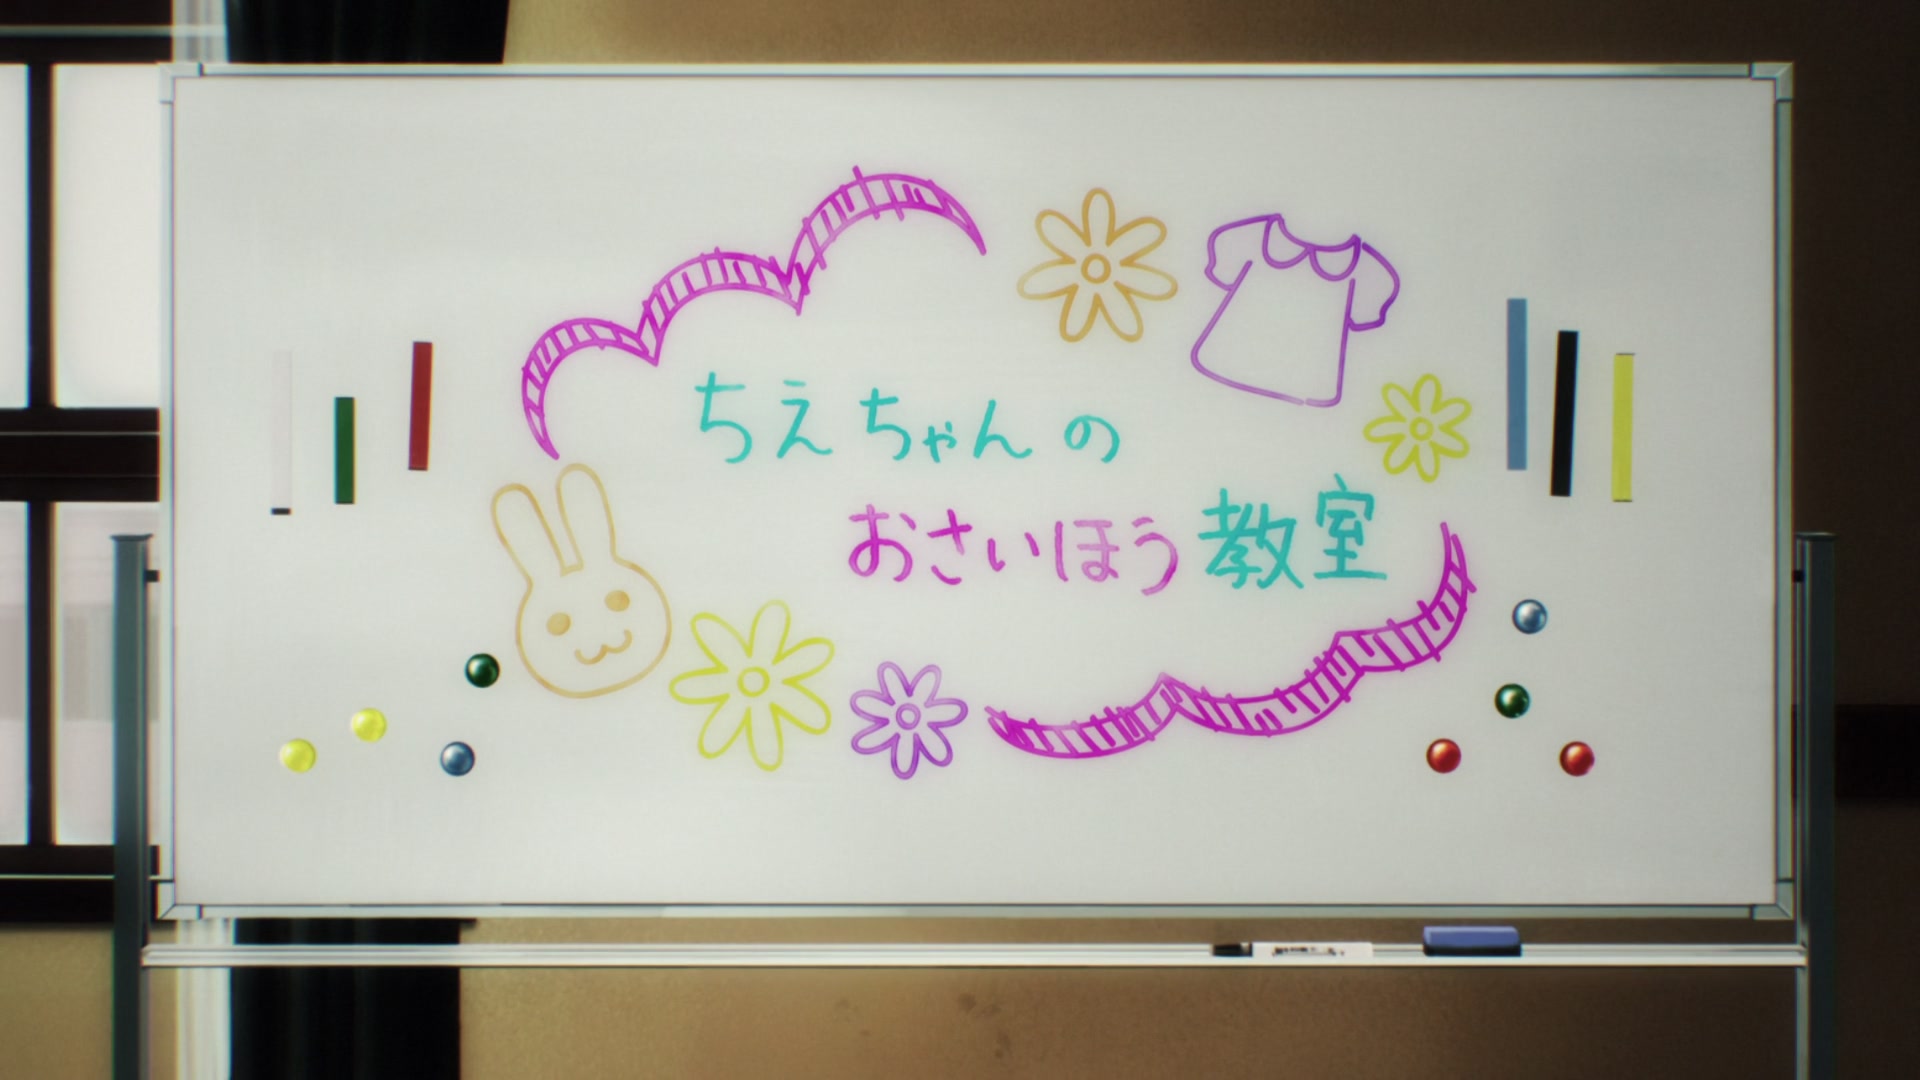 ちえちゃんの
おさいほう教室